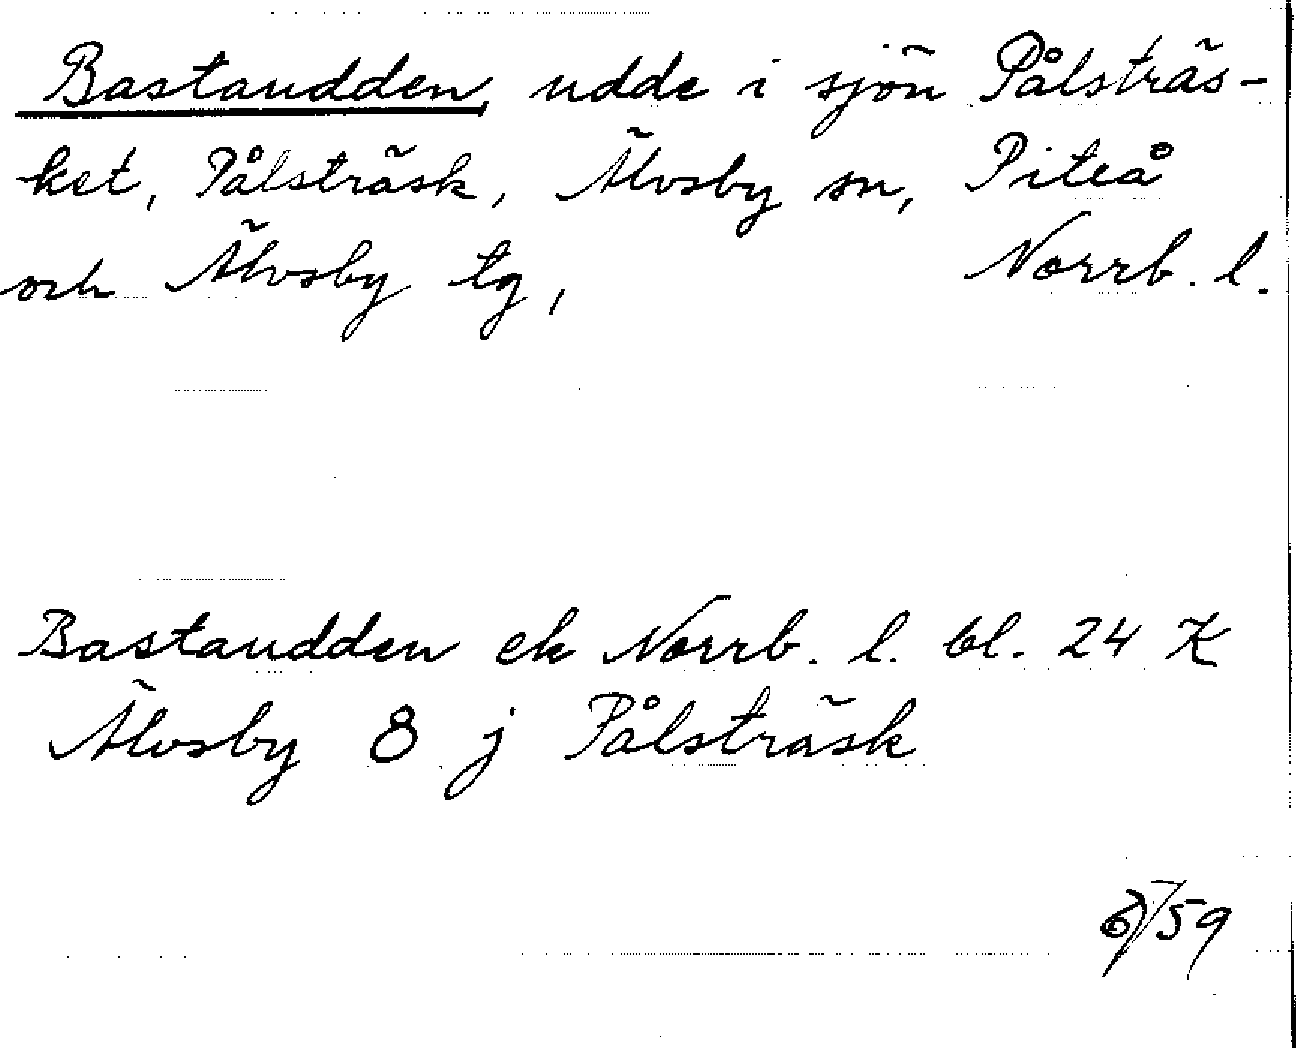 Bastaudden, udde i sjön Pålsträs-
ket, Pålsträsk, Älvsby sn, Piteå
och Älvsby tg, Norrb. l.
Bastaudden ek Norrb. l. bl. 24 K
Älvsby 8 j Pålsträsk
/59